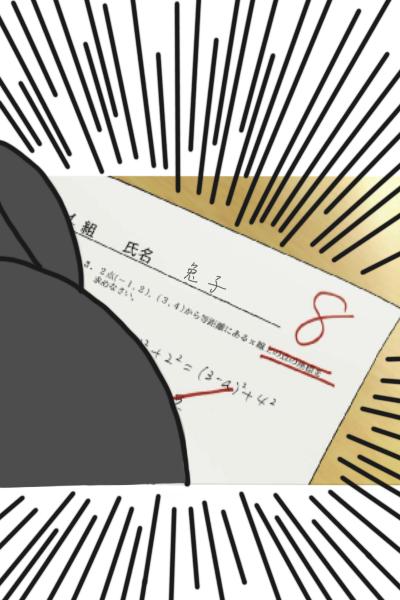 組 氏名 兎子
8
3. 2点(-1,2), (3,4)から等距離にあるx軸
求めなさい。
²+2²=(3-a)²+4²